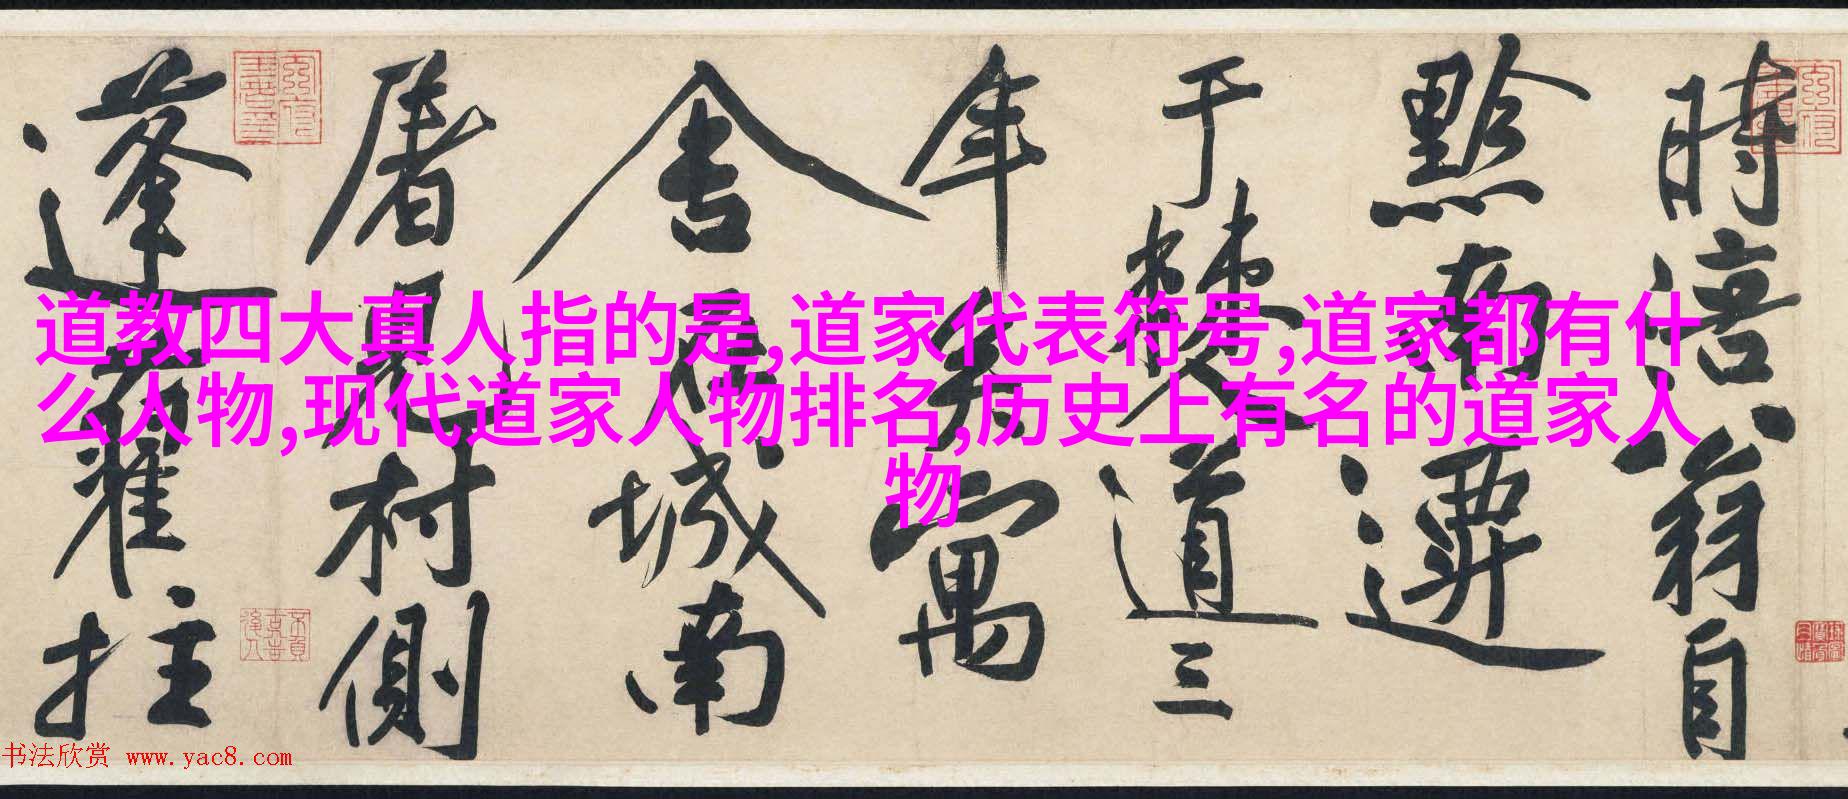 道教四大真人指的是,道家代表符号,道家都有什
么人物,现代道家人物排名,历史上有名的道家人
物
時涪翁自
黔南遷
于僰道三
年矣寓
舍在城南
屠兒村側
蓬藋拄
书法欣赏 www.yac8.com